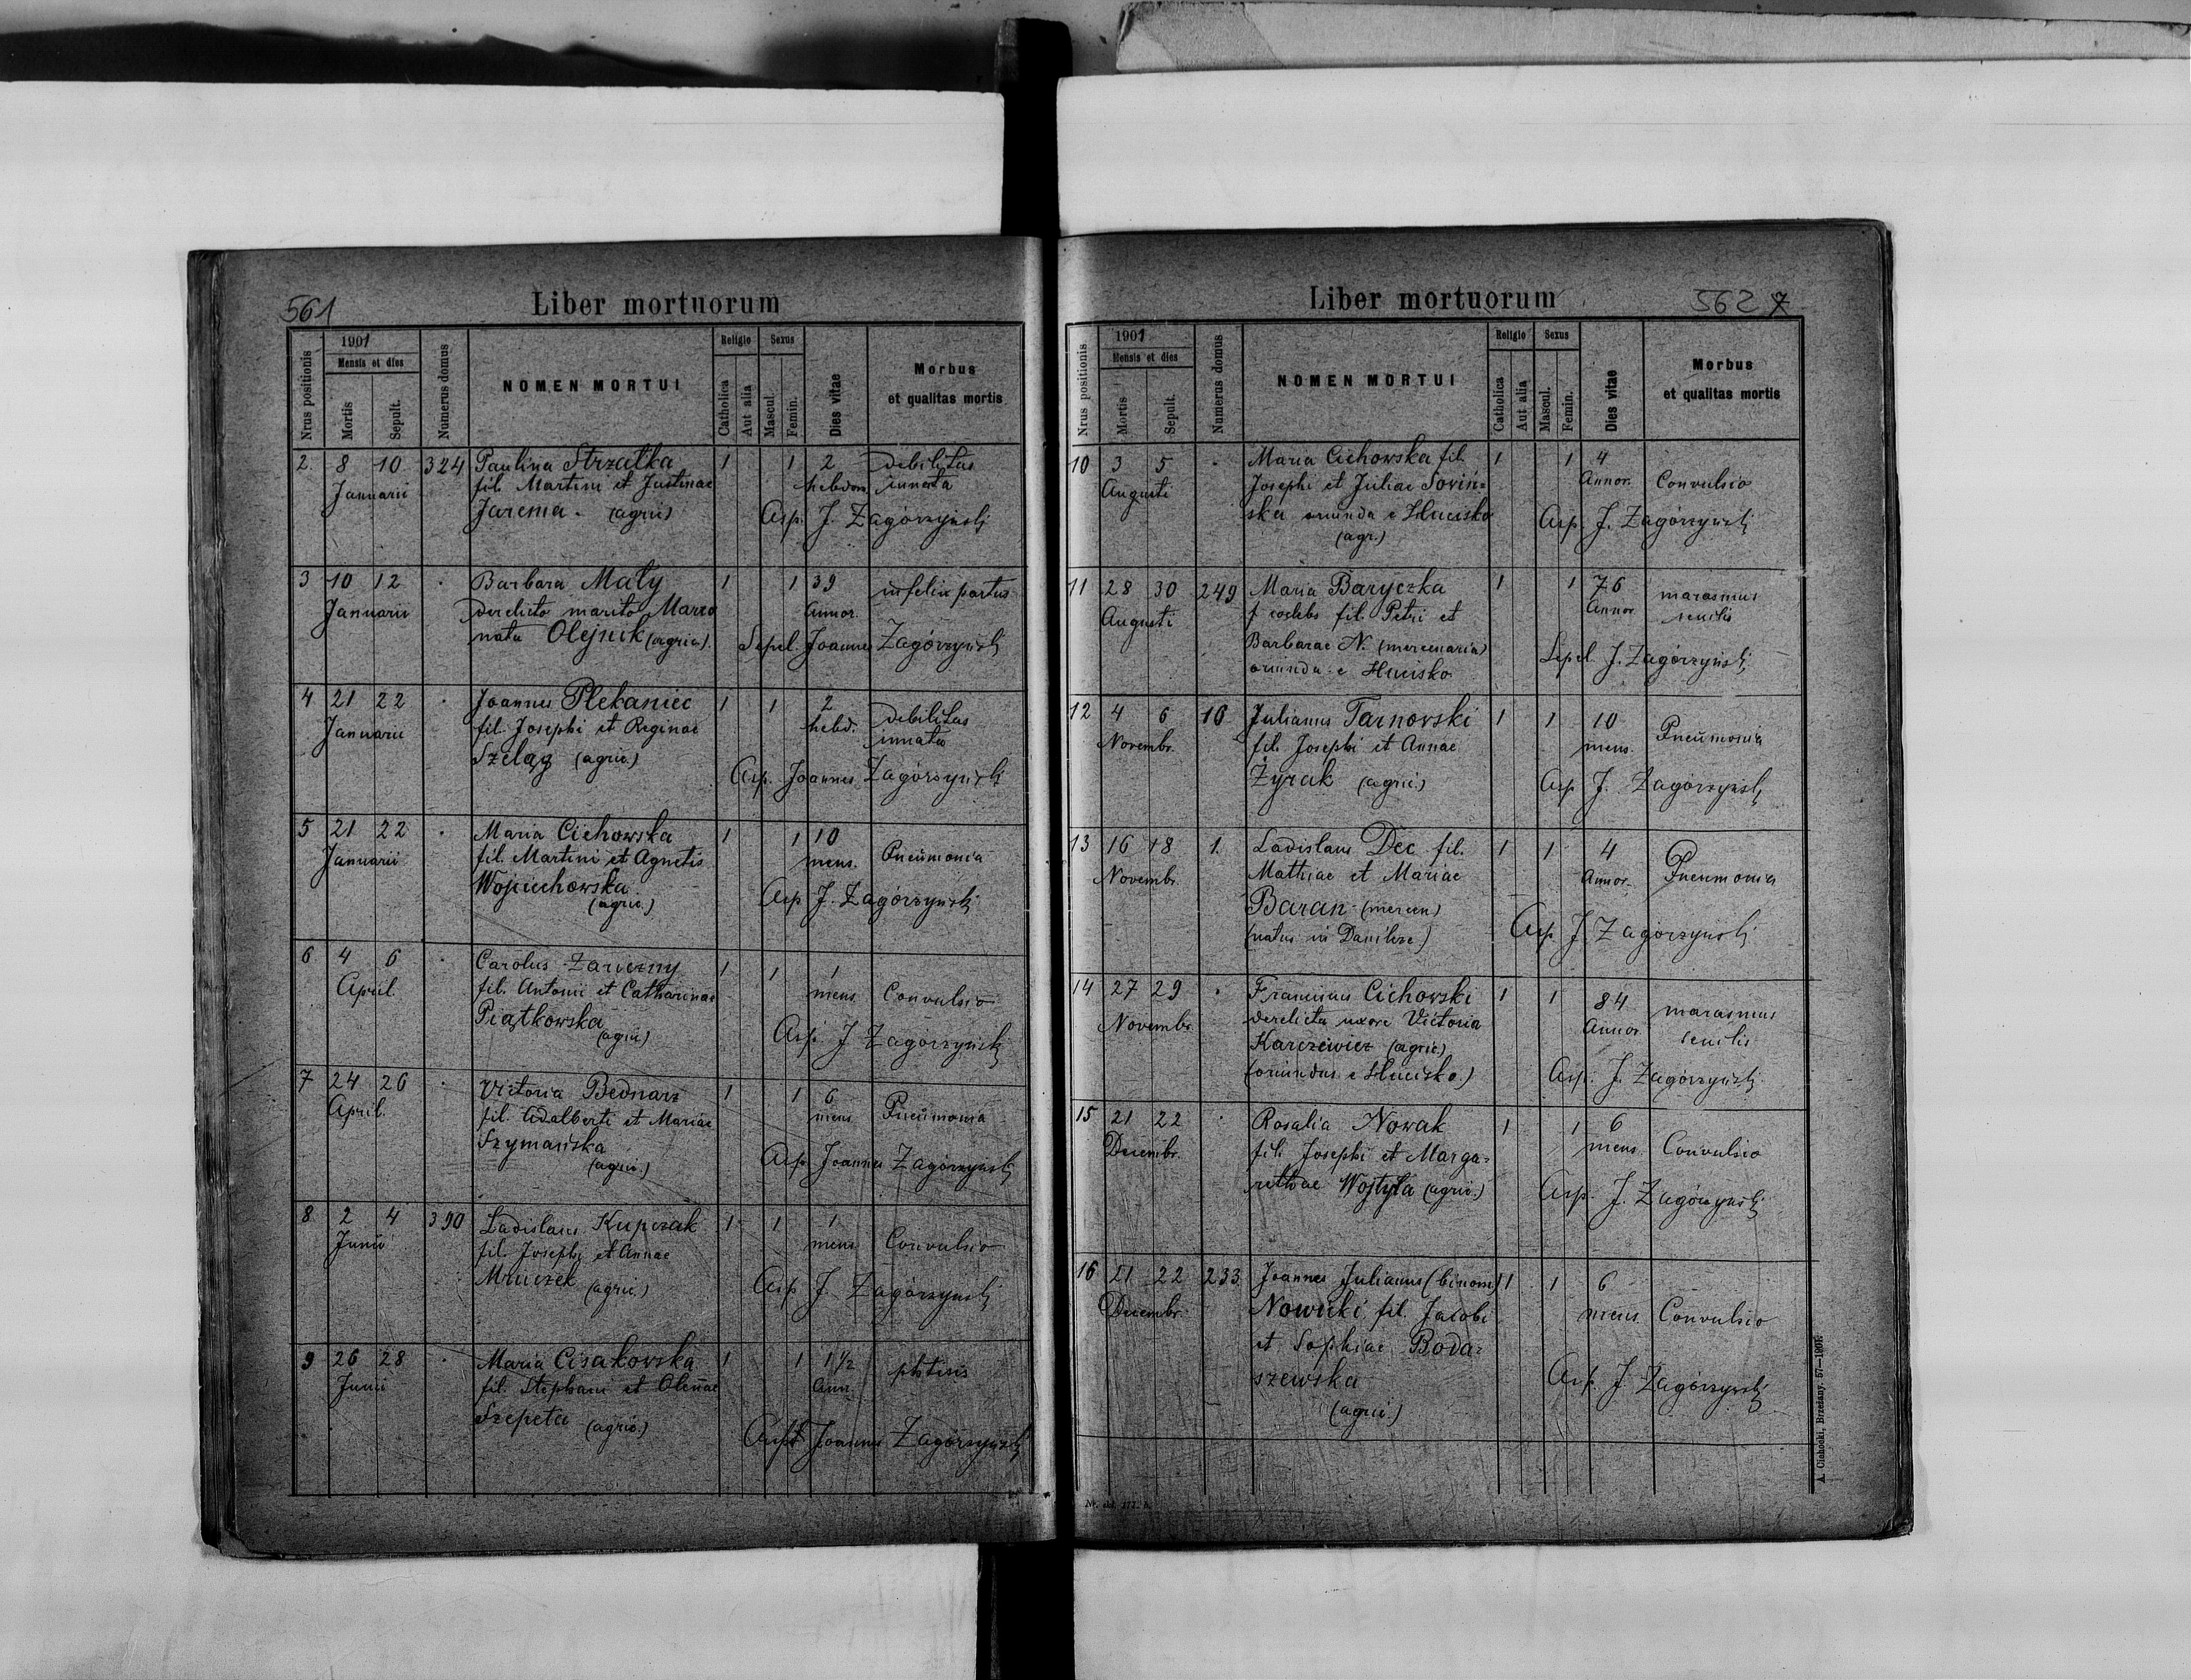 561
Liber mortuorum
Nrus positionis
1901
Mensis et dies
Mortis
Sepult.
Numerus domus
NOMEN MORTUI
Religio
Catholica
Aut alia
Sexus
Mascul.
Femin.
Dies vitae
Morbus
et qualitas mortis
2. 8 10 324 Paulina Strzałka 1 1 2 debilitas
Januarii fil. Martini et Justinae hebdom. innata
Jarema - (agric) Asp. J. Zagórzyński
3 10 12 Barbara Mały 1 1 39 infelix partus
Januarii derelicto marito Marco Annor.
nata Olejnik (agric). Sepel. Joannes Zagórzyński
4 21 22 Joannes Plekaniec 1 1 2 debilitas
Januarii fil. Josephi et Reginae hebd. innata
Szeląg (agric.) Asp. Joannes Zagórzyński
5 21 22 Maria Cichowska 1 1 10 Pneumonia
Januarii fil. Martini et Agnetis mens.
Wojciechowska Asp J. Zagórzyński
(agric.)
6 4 6 Carolus 1 1 1
April. fil. Antonii et Catharinae mens Convulsio
Piątkowska Asp. J Zagórzyński
(agric)
7 24 26 Victoria Bednarz 1 1 6 Pneumonia
April. fil. Adalberti et Mariae mens
Szymańska Asp Joannes Zagórzyński
(agric.)
8 2 4 390 Ladislaus Kupczak 1 1 1 Convulsio
Junii fil. Josephi et Annae mens
Mruczek (agric.) Asp J. Zagórzyński
9 26 28 Maria Cisakowska 1 1 1 1/2 phtisis
Junii fil. Stephani et Olenae Ann.
Szepeta (agric.) Joannes Zagórzyński
562 7
Liber mortuorum
Nrus positionis
1901
Mensis et dies
Mortis
Sepult.
Numerus domus
NOMEN MORTUI
Religio
Catholica
Aut alia
Sexus
Mascul.
Femin.
Dies vitae
Morbus
et qualitas mortis
10 3 5 Maria Cichowska fil. 1 1 4
Augusti Josephi et Juliae Soviń= Annor. Convulsio
ska oriunda e Hucisko Asp. J. Zagórzyński
(agr.)
11 28 30 249 Maria Baryczka 1 1 76 marasmus
Augusti coelebs fil. Petri et Annor senilis
Barbarae N. (mercenaria) Sepel J. Zagórzyński
oriunda e Hucisko
12 4 6 16 Julianus Tarnovski 1 1 10 Pneumonia
Novembr. fil. Josephi et Annae mens.
Żyrak (agric.) Asp J. Zagórzyński
13 16 18 1. Ladislaus Dec fil. 1 1 4
Novembr. Mathiae et Mariae Annor. Pneumonia
Baran - (mercen) Asp J. Zagórzyński
(natus in Danilcze)
14 27 29 Franciscus Cichowski 1 1 84 marasmus
Novembr. derelicta uxore Victoria Annor senilis
Karczewicz (agric.) Asp. J. Zagórzyński
(oriundus e Hucisko.)
15 21 22 Rosalia Nowak 1 1 6
Decembr. fil. Josephi et Marga= mens. Convulsio
rethae Wojtyła (agric.) Asp. J. Zagórzyński
16 21 22 233 Joannes Julianus (binom) 1 1 6
Decembr. Nowicki fil. Jacobi mens. Convulsio
et Sophiae Boda=
szewska Asp. J Zagórzyński
(agric.)
A. Cichocki, Brzeżany. 57—1901.